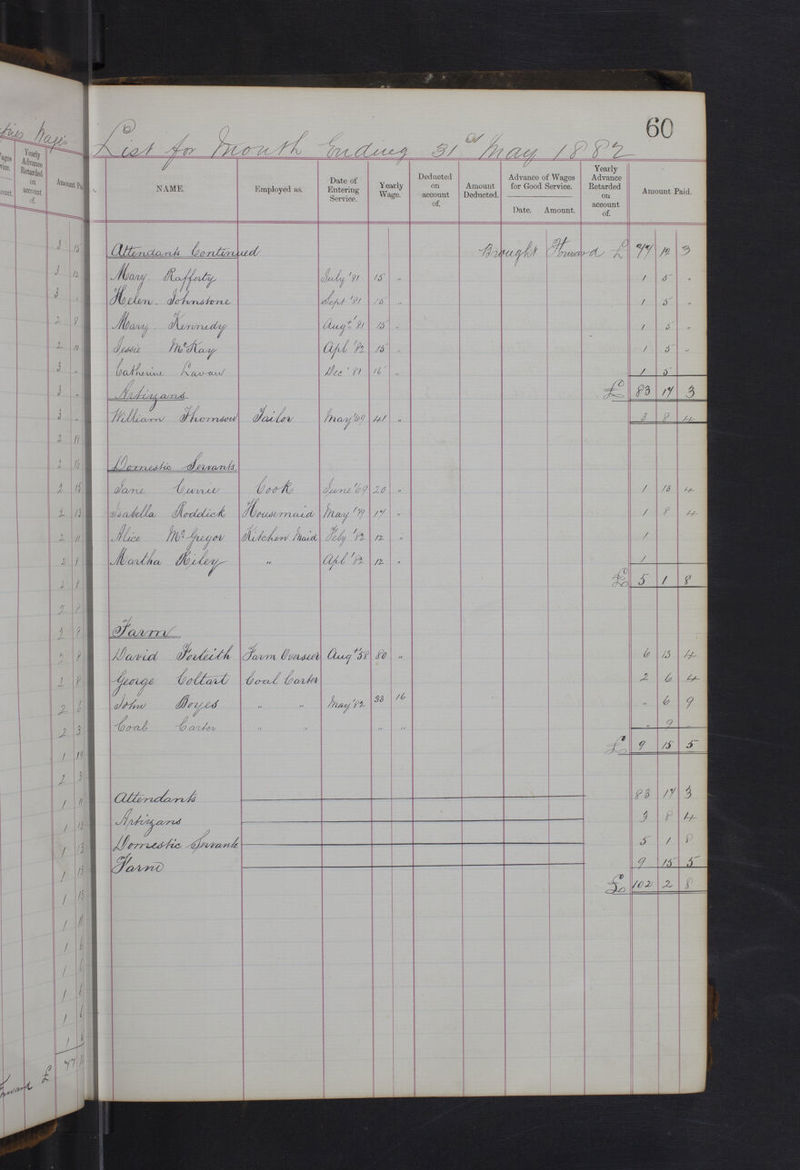 60
List for Month Ending 31st May 1882
NAME. Employed as. Date of Entering Service. Yearly Wage. Deducted on account of. Amount Deducted. Advance of Wages for Good Service. Date. Amount. Yearly Advance Retarded on account of. Amount Paid.
Attendants Continued Brought Forward £ 77 12 3
Mary Rafferty July '81 15 " 1 5 "
Helen Johnstone Sept '81 15 " 1 5 "
Mary Kennedy Augt '81 15 " 1 5 "
Jessie McKay Apl '82 15 " 1 5 "
Catherine Dec '81 16 " 1 5
£ 83 17 3
Artizans
William Thomson Tailor May 41 " 3 8 4
Domestic Servants
Jane Currie Cook June '69 20 " 1 13 4
Isabella Roddick Housemaid May '79 17 " 1 8 4
Alice McGregor Kitchen Maid Feby '82 12 " 1
Martha Riley " Apl '82 12 " 1
£ 5 1 8
Farm
David Forteith Farm Overseer Augt '58 80 " 6 13 4
George Coltart Coal Carter 2 6 4
John Boyes " " May '82 33 16 " 6 9
Coal Carter " " " " " 9 "
£ 9 15 5
Attendants 83 17 3
Artizans 3 8 4
Domestic Servants 5 1 8
Farm 9 15 5
£ 102 2 8